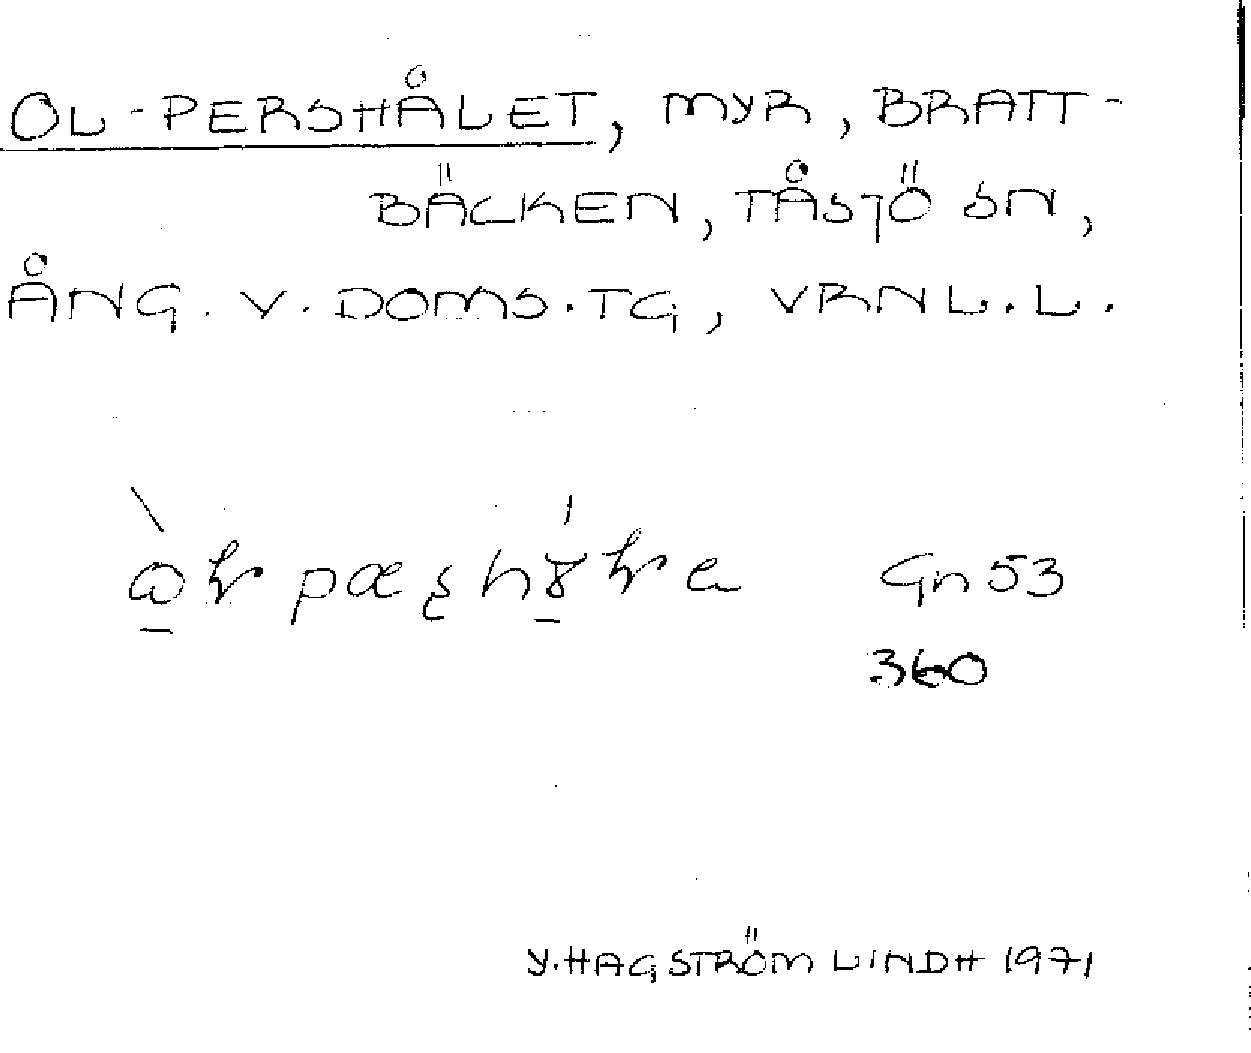 OL-PERSHÅLET, MYR, BRATT-
BÄCKEN, TÅSJÖ SN,
ÅNG. V. DOMS.TG, VRNL.L.
Gn 53
360
Y. HAGSTRÖM LINDH 1971